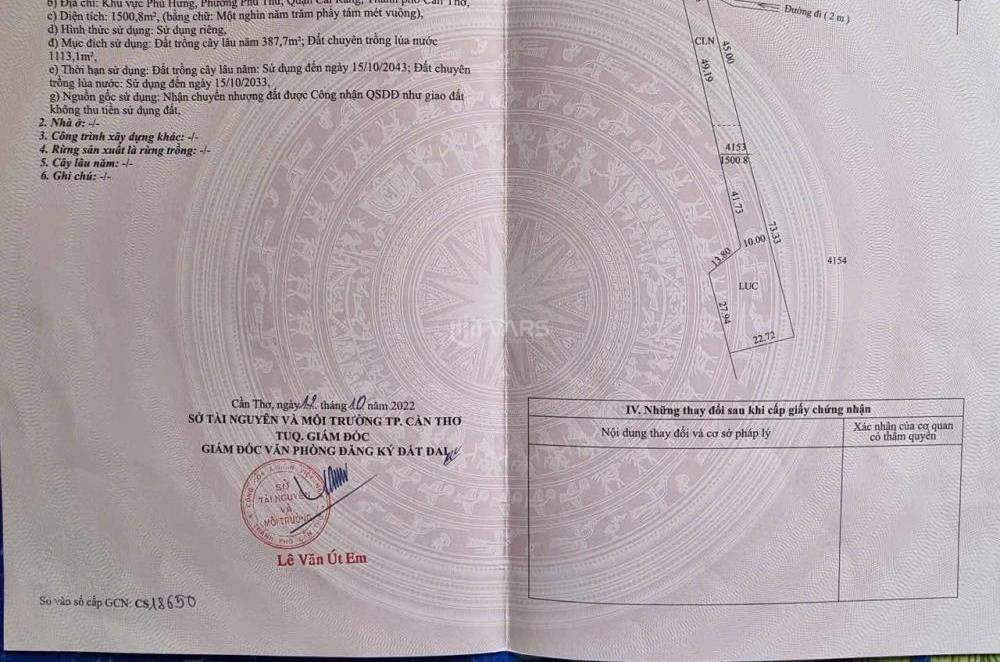 b) Địa chỉ: Khu vực Phú Hưng, Phường Phú Thứ, Quận Cái Răng, Thành phố Cần Thơ,
c) Diện tích: 1500,8m², (bằng chữ: Một nghìn năm trăm phẩy tám mét vuông),
d) Hình thức sử dụng: Sử dụng riêng,
đ) Mục đích sử dụng: Đất trồng cây lâu năm 387,7m²; Đất chuyên trồng lúa nước
1113,1m²,
e) Thời hạn sử dụng: Đất trồng cây lâu năm: Sử dụng đến ngày 15/10/2043; Đất chuyên
trồng lúa nước: Sử dụng đến ngày 15/10/2033,
g) Nguồn gốc sử dụng: Nhận chuyển nhượng đất được Công nhận QSDĐ như giao đất
không thu tiền sử dụng đất,
2. Nhà ở: -/-
3. Công trình xây dựng khác: -/-
4. Rừng sản xuất là rừng trồng: -/-
5. Cây lâu năm: -/-
6. Ghi chú: -/-
Cần Thơ, ngày 12 tháng 10 năm 2022
SỞ TÀI NGUYÊN VÀ MÔI TRƯỜNG TP. CẦN THƠ
TUQ. GIÁM ĐỐC
GIÁM ĐỐC VĂN PHÒNG ĐĂNG KÝ ĐẤT ĐAI
SỞ
TÀI NGUYÊN
VÀ
MÔI TRƯỜNG
Lê Văn Út Em
Số vào sổ cấp GCN: CS18650
Đường đi ( 2 m )
CLN
45.00
49.19
4153
1500.8
41.73
73.33
10.00
13.80
4154
LUC
27.94
22.72
VARS
IV. Những thay đổi sau khi cấp giấy chứng nhận
Nội dung thay đổi và cơ sở pháp lý
Xác nhận của cơ quan
có thẩm quyền